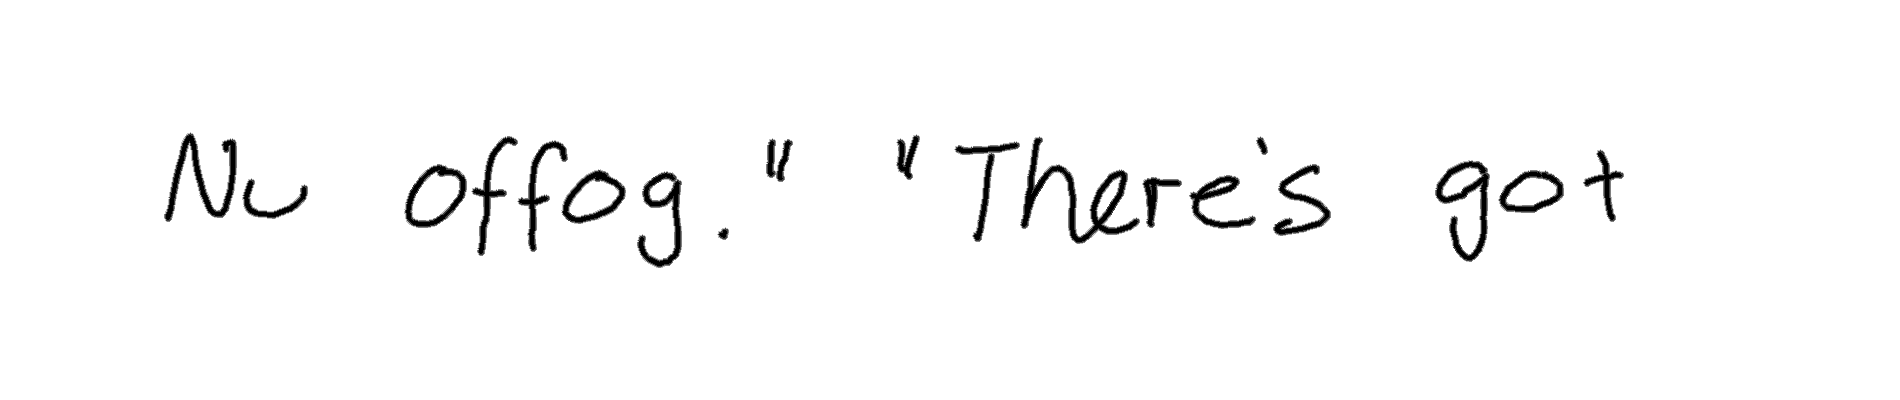 Nu offog." "There's got